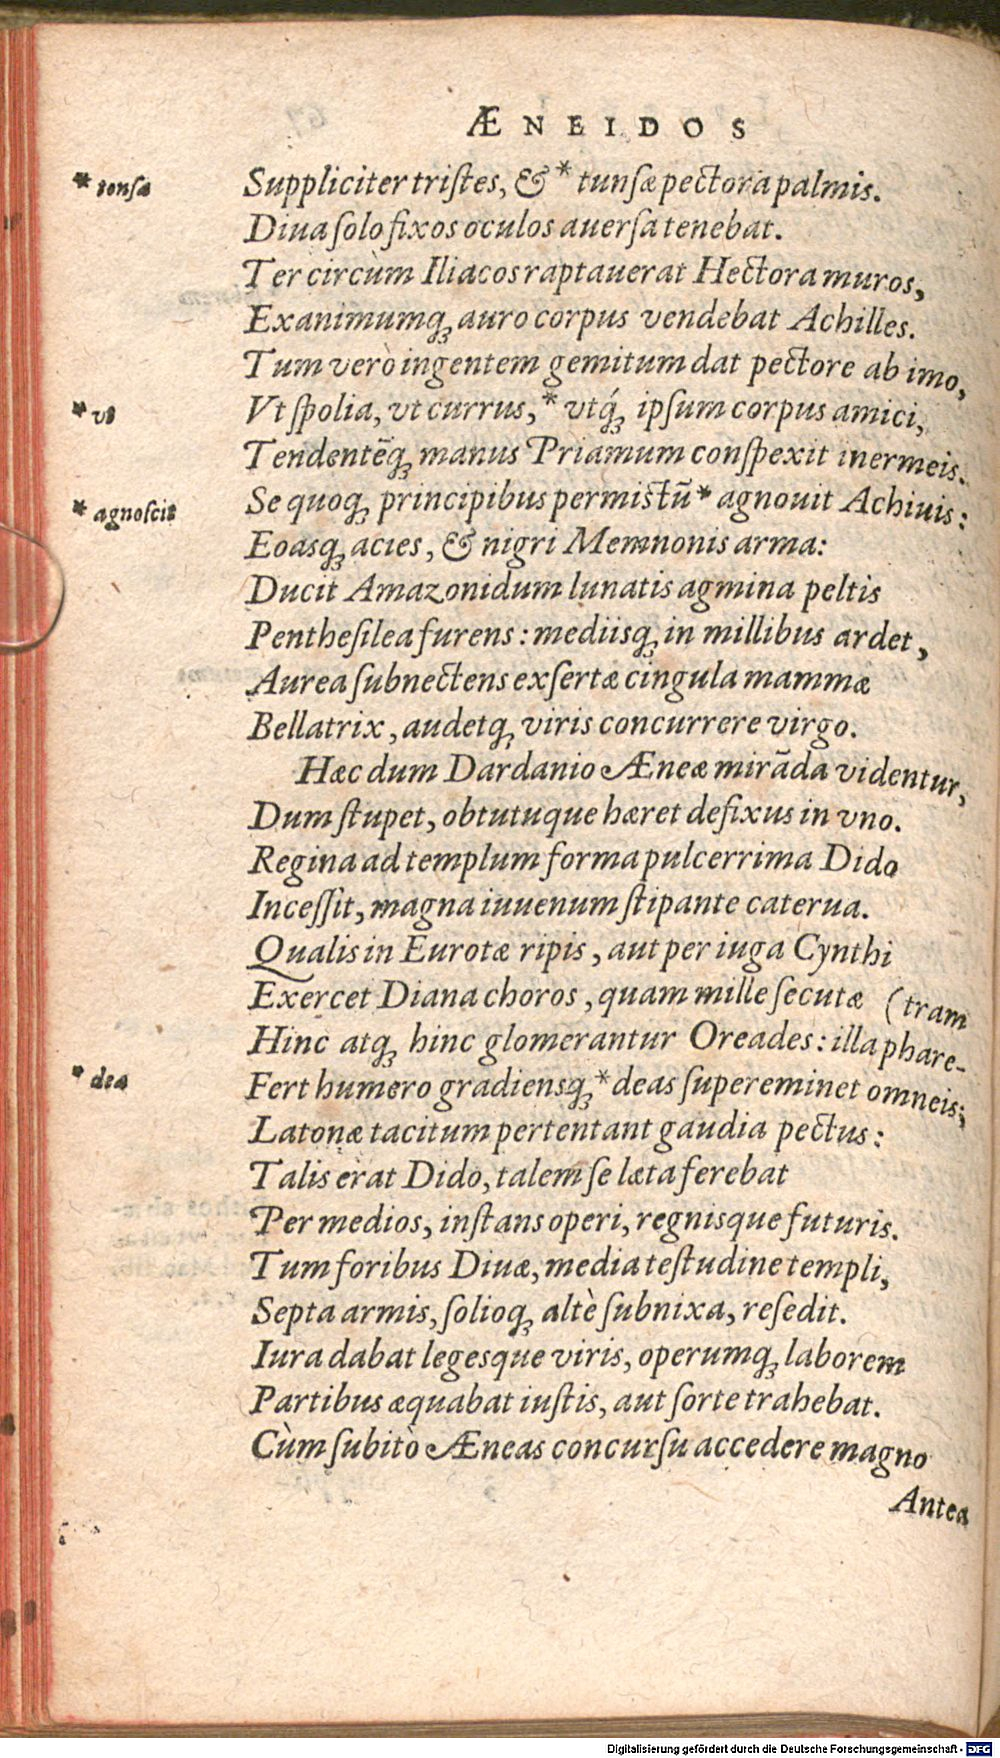 ÆNEIDOS
* tonsæ
Suppliciter tristes, & * tunsæ pectora palmis.
Diua solo fixos oculos auersa tenebat.
Ter circùm Iliacos raptauerat Hectora muros,
Exanimumq; auro corpus vendebat Achilles.
Tum verò ingentem gemitum dat pectore ab imo,
* vt
Vt spolia, vt currus, * vtq́; ipsum corpus amici,
Tendentēq; manus Priamum conspexit inermeis.
* agnoscit
Se quoq; principibus permistū * agnouit Achiuis:
Eoasq; acies, & nigri Memnonis arma:
Ducit Amazonidum lunatis agmina peltis
Penthesilea furens: mediisq; in millibus ardet,
Aurea subnectens exsertæ cingula mammæ
Bellatrix, audetq; viris concurrere virgo.
Hæc dum Dardanio Æneæ mirāda videntur,
Dum stupet, obtutuque hæret defixus in vno.
Regina ad templum forma pulcerrima Dido
Incessit, magna iuuenum stipante caterua.
Qualis in Eurotæ ripis, aut per iuga Cynthi
Exercet Diana choros, quam mille secutæ (tram
Hinc atq; hinc glomerantur Oreades: illa phare-
* dea
Fert humero gradiensq; * deas supereminet omneis;
Latonæ tacitum pertentant gaudia pectus:
Talis erat Dido, talem se læta ferebat
Per medios, instans operi, regnisque futuris.
Tum foribus Diuæ, media testudine templi,
Septa armis, solioq; altè subnixa, resedit.
Iura dabat legesque viris, operumq; laborem
Partibus æquabat iustis, aut sorte trahebat.
Cùm subitò Æneas concursu accedere magno
Antea
Digitalisierung gefördert durch die Deutsche Forschungsgemeinschaft - DFG